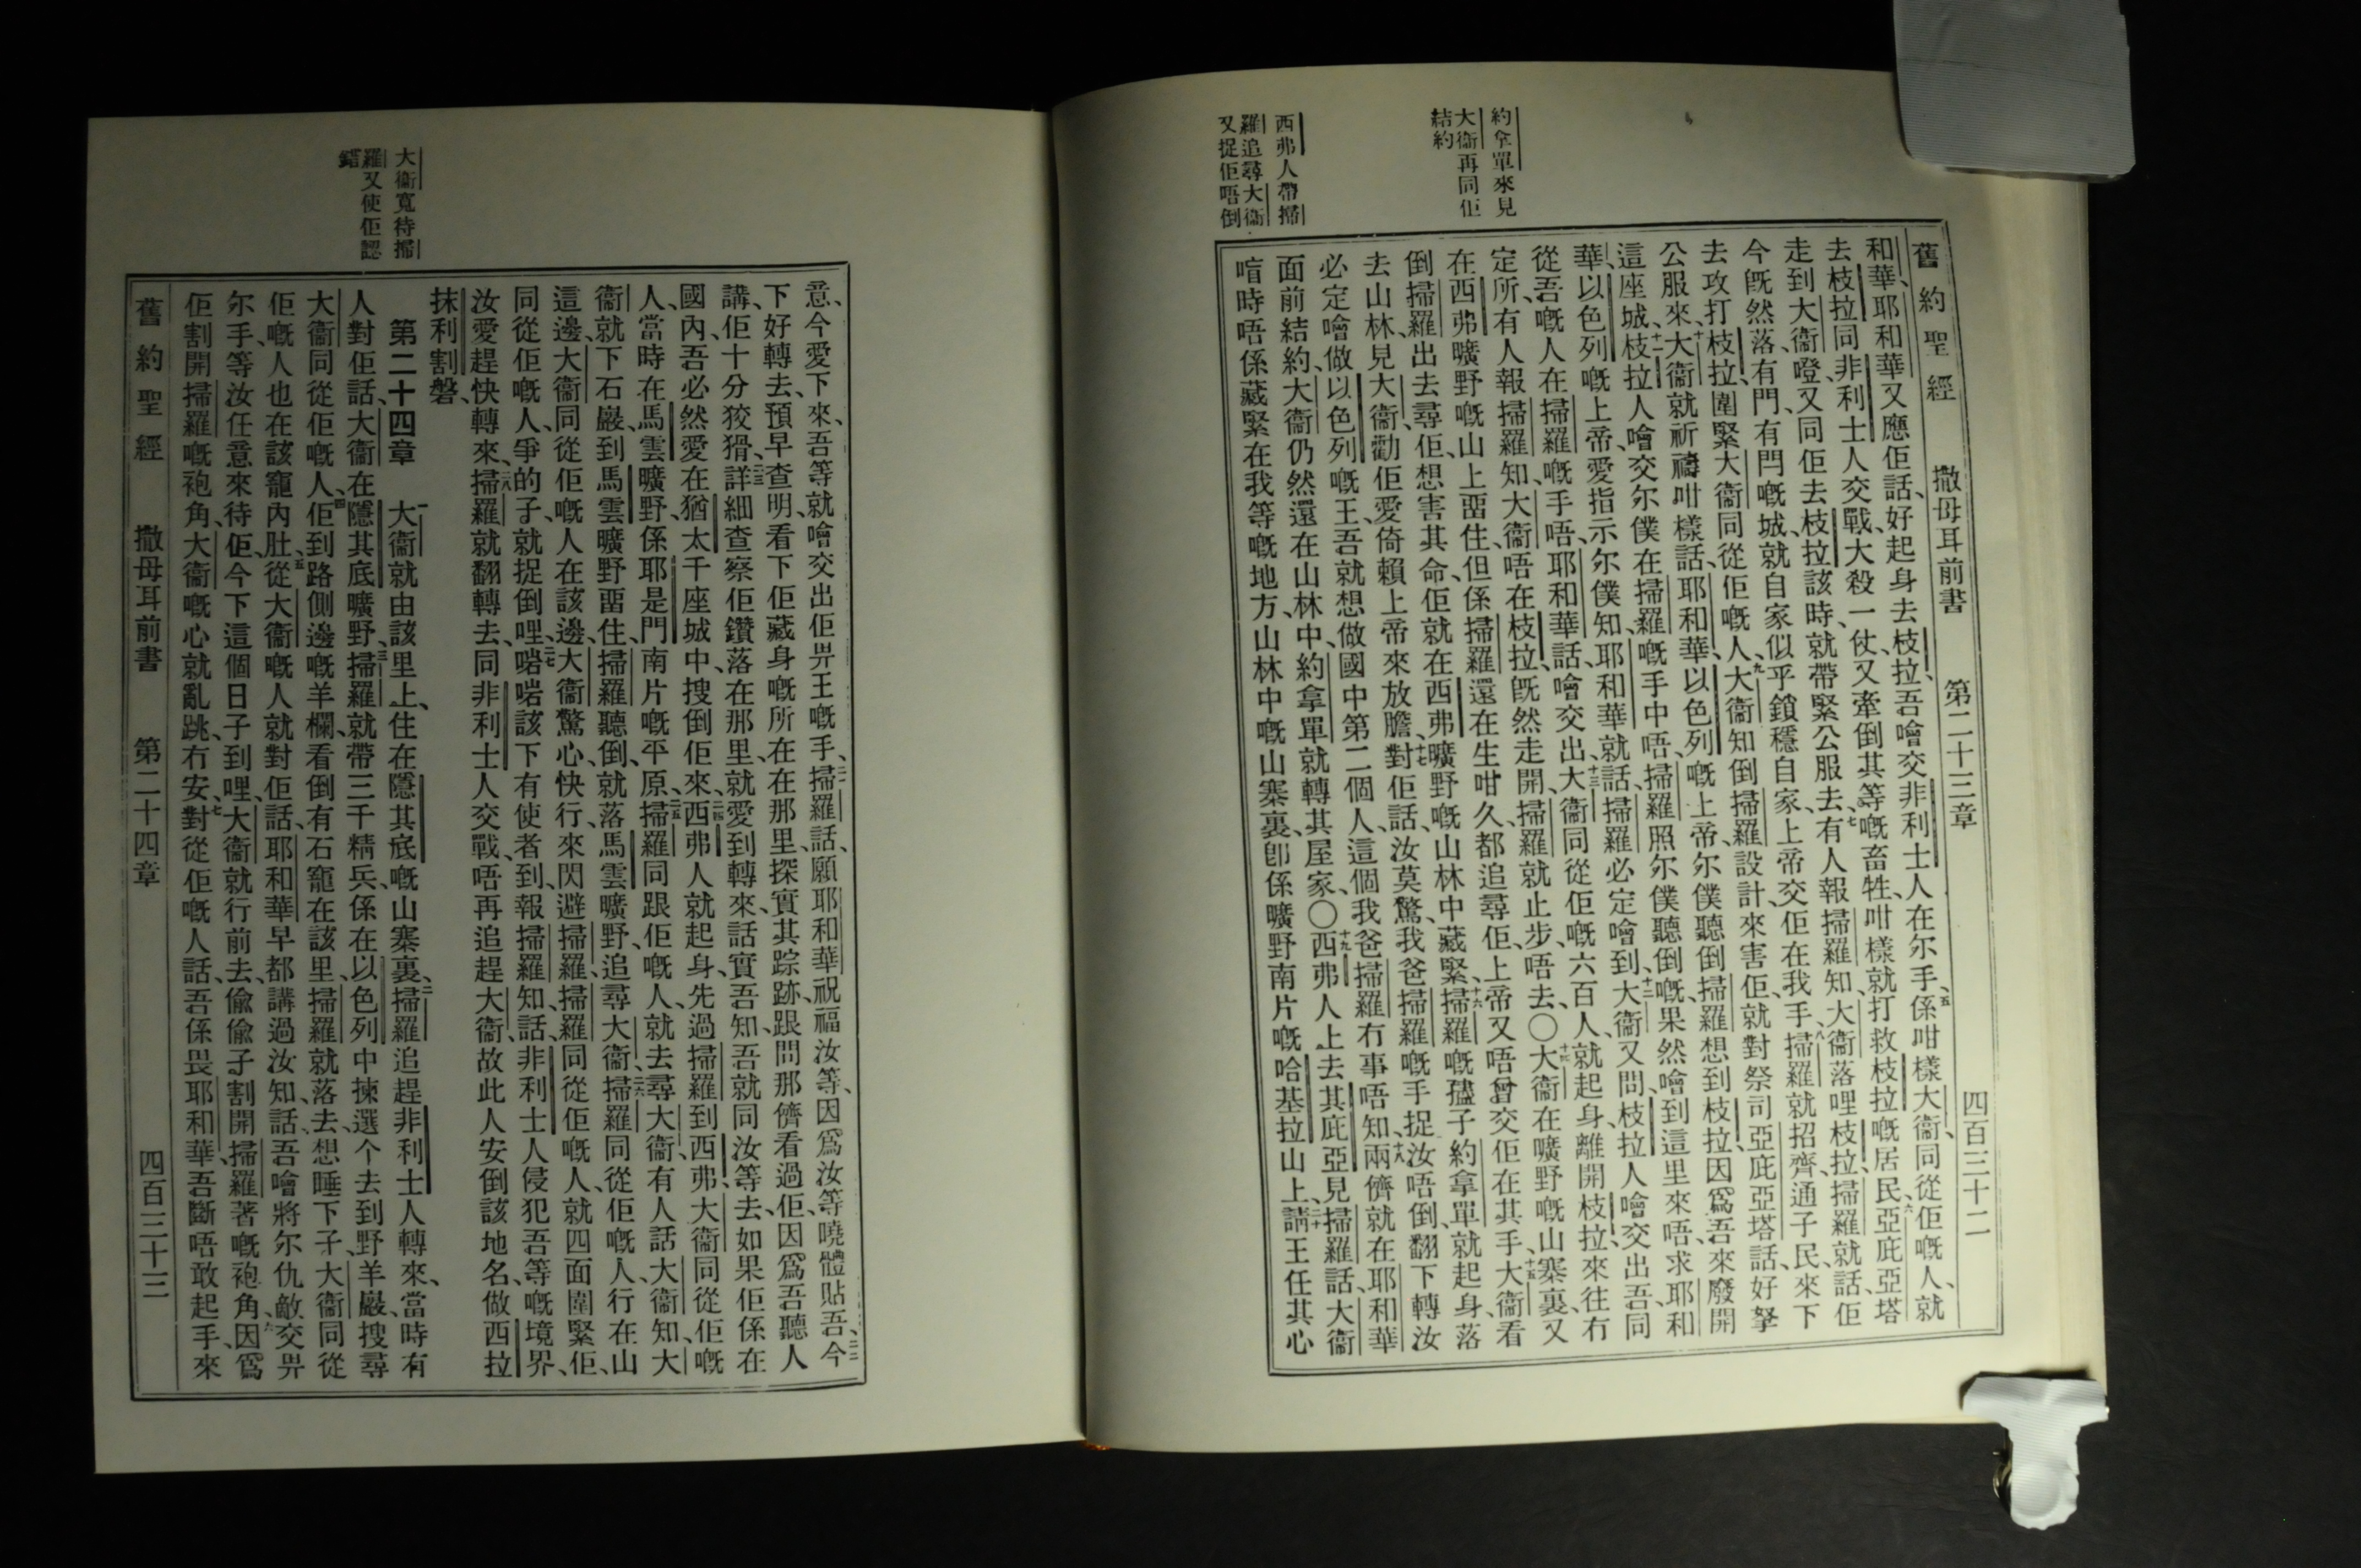 約拿單來見
大衞再同佢
結約
西弗人帶掃
羅追尋大衞
又捉佢唔倒
舊約聖經 撒母耳前書 第二十三章 四百三十二
和華、耶和華又應佢話、好起身去枝拉、吾噲交非利士人在尔手、五係咁樣大衞、同從佢嘅人、就
去枝拉同非利士人交戰、大殺一仗、又牽倒其等嘅畜牲、咁樣就打救枝拉嘅居民、六亞庇亞塔
走到大衞嶝、又同佢去枝拉該時、就帶緊公服去、七有人報掃羅知、大衞落哩枝拉、掃羅就話、佢
今既然落、有門、有閂嘅城、就自家似乎鎖穩自家、上帝交佢在我手、八掃羅就招齊、通子民、來下
去攻打枝拉、圍緊大衞同從佢嘅人、九大衞知倒掃羅設計、來害佢、就對祭司亞庇亞塔話、好拏
公服來、十大衞就祈禱咁樣話、耶和華、以色列嘅上帝、尔僕聽倒掃羅想到枝拉、因爲吾來廢開
這座城、十一枝拉人噲交尔僕在掃羅嘅手中唔、掃羅照尔僕聽倒嘅、果然噲到這里來唔、求耶和
華、以色列嘅上帝、愛指示尔僕知、耶和華就話、掃羅必定噲到、十二大衞又問、枝拉人噲交出吾同
從吾嘅人在掃羅嘅手唔、耶和華話、噲交出、十三大衞同從佢嘅六百人、就起身、離開枝拉、來往冇
定所、有人報掃羅知、大衞唔在枝拉、既然走開、掃羅就止步、唔去、〇十四大衞在曠野嘅山寨裏、又
在西弗曠野嘅山上畱住、但係掃羅還在生咁久、都追尋佢、上帝又唔曾交佢在其手、十五大衞看
倒掃羅出去尋佢、想害其命、佢就在西弗曠野嘅山林中藏緊、十六掃羅嘅孻子約拿單就起身、落
去山林、見大衞、勸佢愛倚賴上帝來放膽、十七對佢話、汝莫驚、我爸掃羅嘅手捉汝唔倒、翻下轉汝
必定噲做以色列嘅王、吾就想做國中第二個人、這個我爸掃羅冇事唔知、十八兩儕就在耶和華
面前結約、大衞仍然還在山林中、約拿單就轉其屋家、〇十九西弗人上去其庇亞見掃羅話、大衞
唷時唔係藏緊在我等嘅地方、山林中嘅山寨裏、卽係曠野南片嘅哈基拉山上、二十請王任其心
大衞寬待掃
羅又使佢認
錯
意、今愛下來、吾等就噲交出佢畀王嘅手、二一掃羅話、願耶和華祝福汝等、因爲汝等曉體貼吾、二二今
下好轉去、預早查明、看下佢藏身嘅所在、在那里、探實其踪跡、跟問那儕看過佢、因爲吾聽人
講、佢十分狡猾、二三詳細查察佢鑽落在那里、就愛到轉來話實吾知、吾就同汝等去、如果佢係在
國內、吾必然愛在猶太千座城中、搜倒佢來、二四西弗人就起身、先過掃羅到西弗、大衞同從佢嘅
人、當時在馬雲曠野、係耶是門南片嘅平原、二五掃羅同跟佢嘅人、就去尋大衞、有人話大衞知、大
衞就下石巖、到馬雲曠野畱住、掃羅聽倒、就落馬雲曠野、追尋大衞、二六掃羅同從佢嘅人、行在山
這邊、大衞同從佢嘅人在該邊、大衞驚心、快行、來閃避掃羅、掃羅同從佢嘅人、就四面圍緊佢、
同從佢嘅人、爭的子、就捉倒哩、二七啱啱該下有使者到、報掃羅知、話、非利士人侵犯吾等嘅境界、
汝愛趕快轉來、二八掃羅就翻轉去、同非利士人交戰、唔再追趕大衞、故此人安倒該地名、做西拉
抹利割磐、
第二十四章 一大衞就由該里上、住在隱其底嘅山寨裏、二掃羅追趕非利士人轉來、當時有
人對佢話、大衞在隱其底曠野、三掃羅就帶三千精兵、係在以色列中揀選个、去到野羊巖、搜尋
大衞同從佢嘅人、四佢到路側邊嘅羊欄、看倒有石竉在該里、掃羅就落去、想睡下子、大衞同從
佢嘅人也在該竉內肚、五從大衞嘅人就對佢話、耶和華早都講過汝知、話、吾噲將尔仇敵、交畀
尔手、等汝任意來待佢、今下這個日子到哩、大衞就行前去、偸偸子割開掃羅著嘅袍角、六因爲
佢割開掃羅嘅袍角、大衞嘅心就亂跳、冇安、七對從佢嘅人話、吾係畏耶和華、吾斷唔敢起手、來
舊約聖經 撒母耳前書 第二十四章 四百三十三